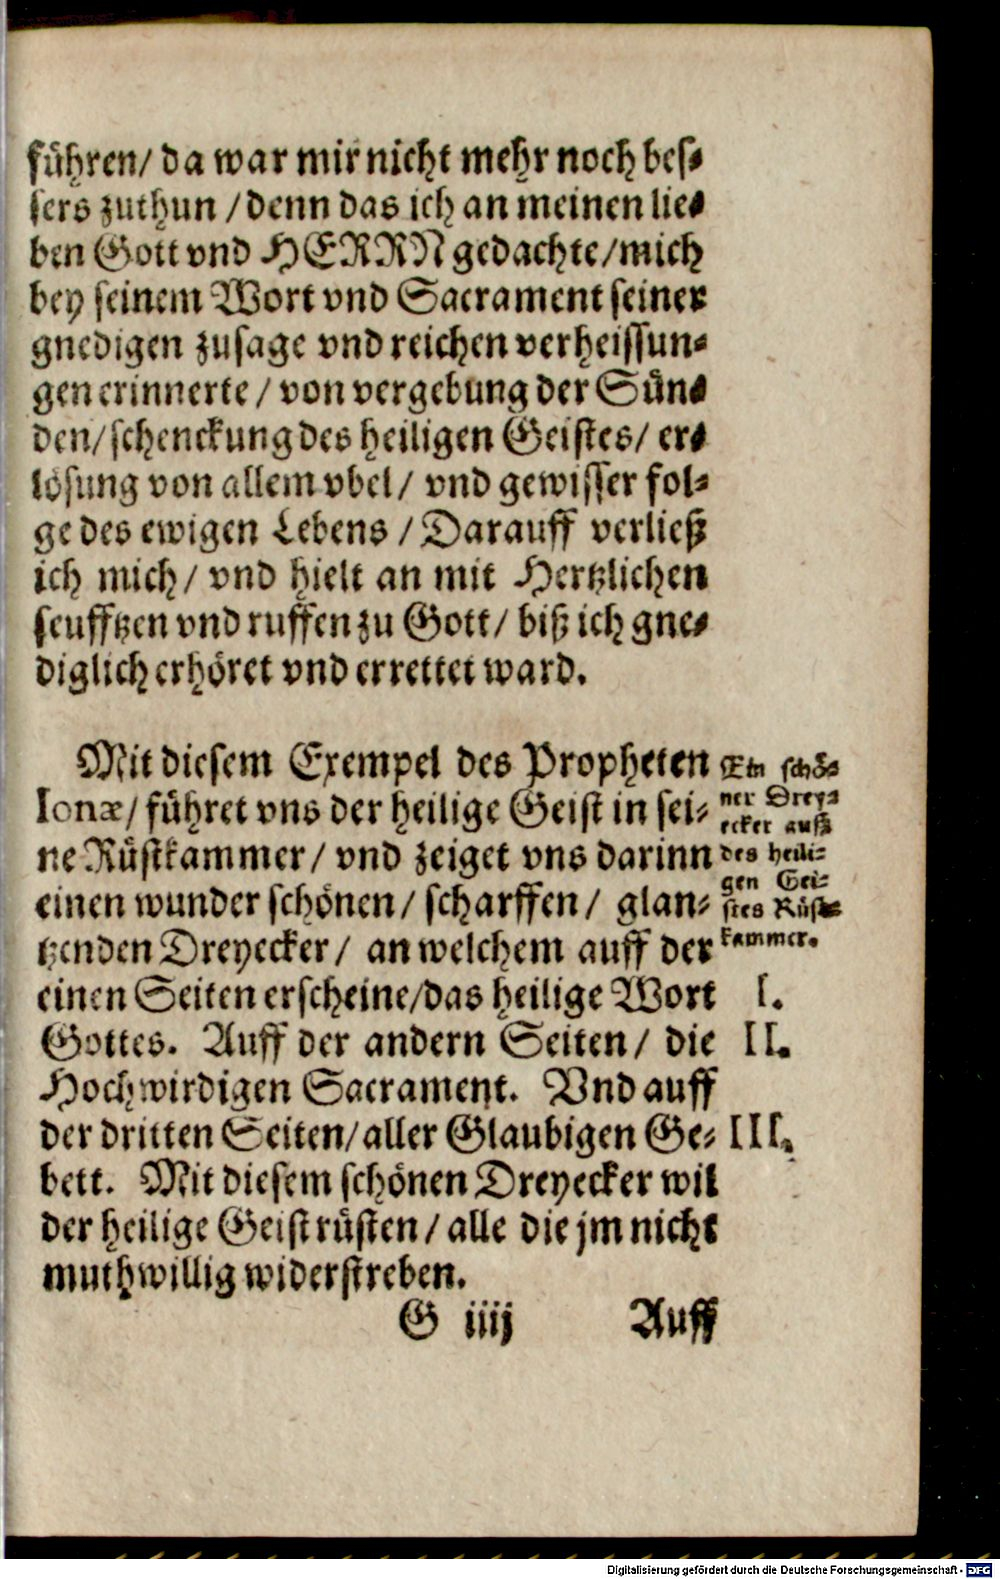 führen/ da war mir nicht mehr noch bes⸗
sers zuthun / denn das ich an meinen lie⸗
ben Gott vnd HERRN gedachte/mich
bey seinem Wort vnd Sacrament seiner
gnedigen zusage vnd reichen verheissun⸗
gen erinnerte / von vergebung der Sün⸗
den/ schenckung des heiligen Geistes/ er⸗
lösung von allem vbel/ vnd gewisser fol⸗
ge des ewigen Lebens / Darauff verließ
ich mich/ vnd hielt an mit Hertzlichen
seufftzen vnd ruffen zu Gott/ biß ich gne⸗
diglich erhöret vnd errettet ward.
Mit diesem Exempel des Propheten
Ionæ/ führet vns der heilige Geist in sei⸗
ne Rüstkammer/ vnd zeiget vns darinn
einen wunder schönen/ scharffen/ glan⸗
tzenden Dreyecker/ an welchem auff der
einen Seiten erscheine/das heilige Wort
Gottes. Auff der andern Seiten/ die
Hochwirdigen Sacrament. Vnd auff
der dritten Seiten/aller Glaubigen Ge⸗
bett. Mit diesem schönen Dreyecker wil
der heilige Geist rüsten/ alle die jm nicht
muthwillig widerstreben.
Ein schö⸗
ner Drey⸗
ecker auß
des heili⸗
gen Gei⸗
stes Rüst⸗
kammer.
I.
II.
III.
G iiij Auff
Digitalisierung gefördert durch die Deutsche Forschungsgemeinschaft - DFG